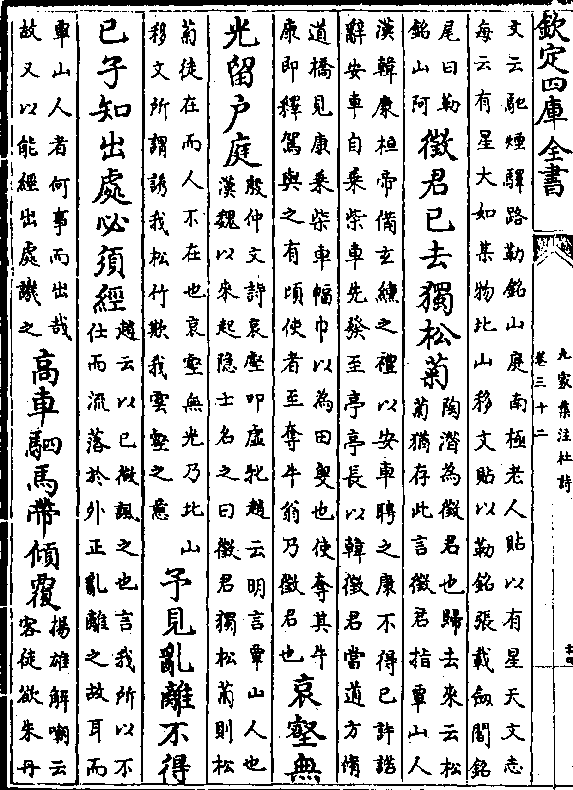 欽定四庫全書
九家集注杜詩
卷三十二
十四
文云馳煙驛路勒銘山庭南極老人貼以有星天文志
每云有星大如某物北山移文貼以勒銘張載劒閣銘
尾曰勒
銘山阿
徵君已去獨松菊
陶潛為徵君也歸去來云松
菊猶存此言徵君指覃山人
漢韓康桓帝備玄纁之禮以安車聘之康不得已許諾
辭安車自乗柴車先發至亭亭長以韓徵君當道方脩
道橋見康乗柴車幅巾以為田叟也使奪其牛
康即釋駕與之有頃使者至奪牛翁乃徵君也
哀壑無
光留户庭
殷仲文詩哀壑叩虚牝趙云明言覃山人也
漢魏以來起隐士名之曰徵君獨松菊則松
菊徒在而人不在也哀壑無光乃北山
移文所謂誘我松竹欺我雲壑之意
予見亂離不得
已子知出處必須經
趙云以已微諷之也言我所以不
仕而流落於外正亂離之故耳而
覃山人者何事而出哉
故又以能經出處譏之
高車駟馬帶傾覆
揚雄解嘲云
客徒欲朱丹